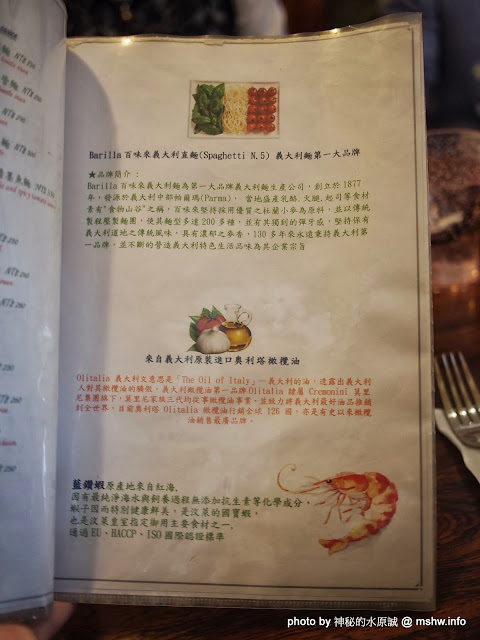 Barilla 百味來義大利直麵(Spaghetti N.5) 義大利麵第一大品牌
★品牌簡介：
Barilla百味來義大利麵為第一大品牌義大利麵生產公司，創立於1877
年，發源於義大利中部帕爾瑪(Parma)， 當地盛產乳酪.火腿.起司等食材
素有"食物山谷"之稱，百味來堅持採用優質之杜蘭小麥為原料，並以傳統
製程壓製麵團，使其麵型多達 200 多種，並有其獨到的彈牙感，堅持保有
義大利道地之傳統風味，具有濃郁之麥香，130 多年來永遠秉持義大利第
一品牌，並不斷的營造義大利特色生活品味為其企業宗旨
來自義大利原裝進口奧利塔橄欖油
Olitalia 義大利文意思是「The Oil of Italy」—義大利的油，透露出義大利
人對其橄欖油的驕傲，義大利橄欖油第一品牌Olitalia 隸屬 Cremonini 莫里
尼集團旗下，莫里尼家族三代均從事橄欖油事業，並致力將義大利最好油品推銷
到全世界，目前奧利塔 Olitalia 橄欖油行銷全球 126 國，亦是有史以來橄欖
油銷售最廣品牌。
藍鑽蝦原產地來自紅海，
因有最純淨海水與飼養過程無添加抗生素等化學成分，
蝦子因而特別健康鮮美，是汶萊的國寶蝦，
也是汶萊皇室指定御用主要食材之一。
通過 EU、HACCP、ISO 國際認證標準
photo by 神秘的水原誠 @ mshw.info